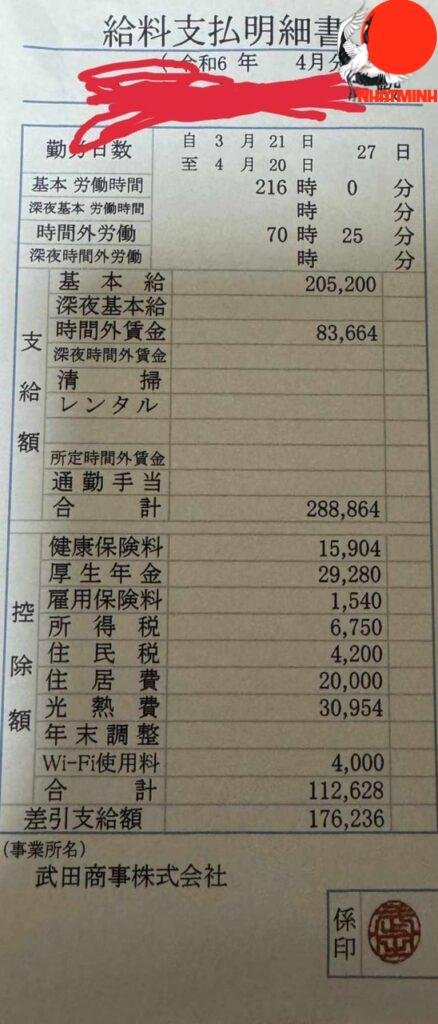 給料支払明細書
(令和6年 4月分
NHATMINH
勤労日数 自 3 月 21 日 至 4 月 20 日 27 日
基本 労働時間 216 時 0 分
深夜基本 労働時間 時 分
時間外労働 70 時 25 分
深夜時間外労働 時 分
支給額
基本給 205,200
深夜基本給
時間外賃金 83,664
深夜時間外賃金
清掃
レンタル
所定時間外賃金
通勤手当
合計 288,864
控除額
健康保険料 15,904
厚生年金 29,280
雇用保険料 1,540
所得税 6,750
住民税 4,200
住居費 20,000
光熱費 30,954
年末調整
Wi-Fi使用料 4,000
合計 112,628
差引支給額 176,236
(事業所名)
武田商事株式会社
係印